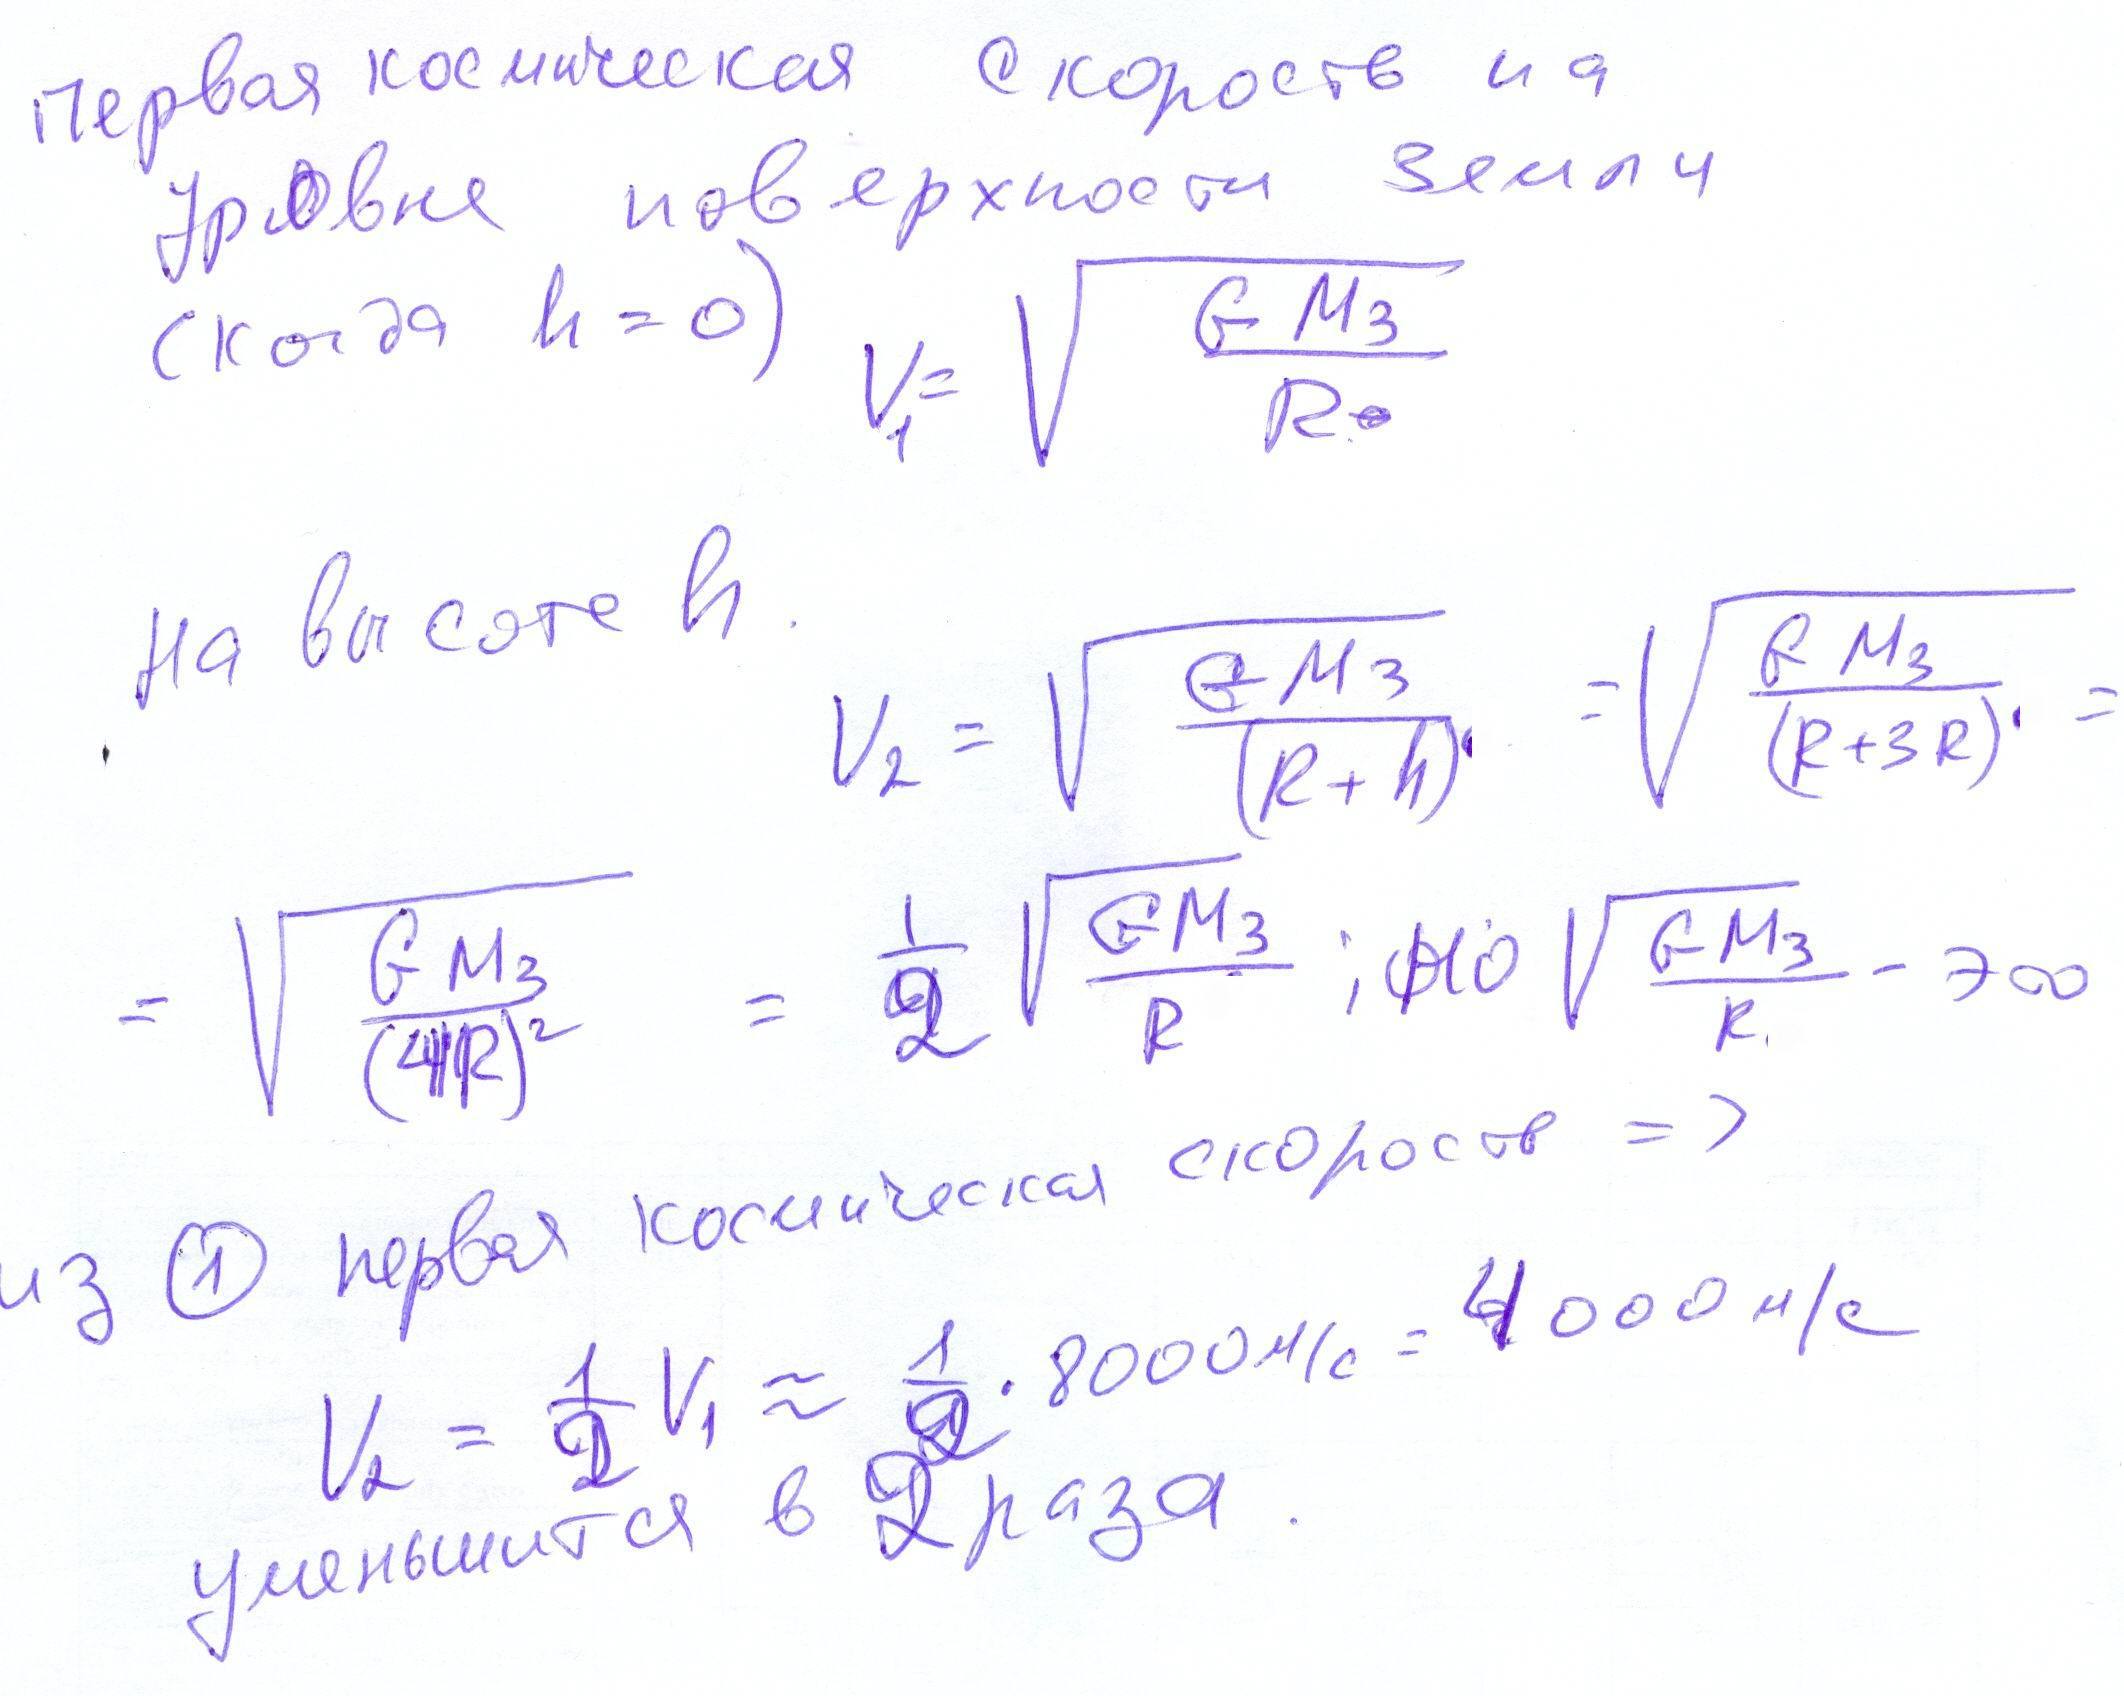 Первая космическая скорость на
уровне поверхности Земли
(когда h = 0) V₁ = √(G Mз / R)
На высоте h.
V₂ = √(G Mз / (R + h)) = √(G Mз / (R + 3R)) =
= √(G Mз / (4R)²) = 1/2 √(G Mз / R) ; но √(G Mз / R) - это
из ① первая космическая скорость =>
V₂ = 1/2 V₁ ≈ 1/2 · 8000 м/с = 4000 м/с
уменьшится в 2 раза.